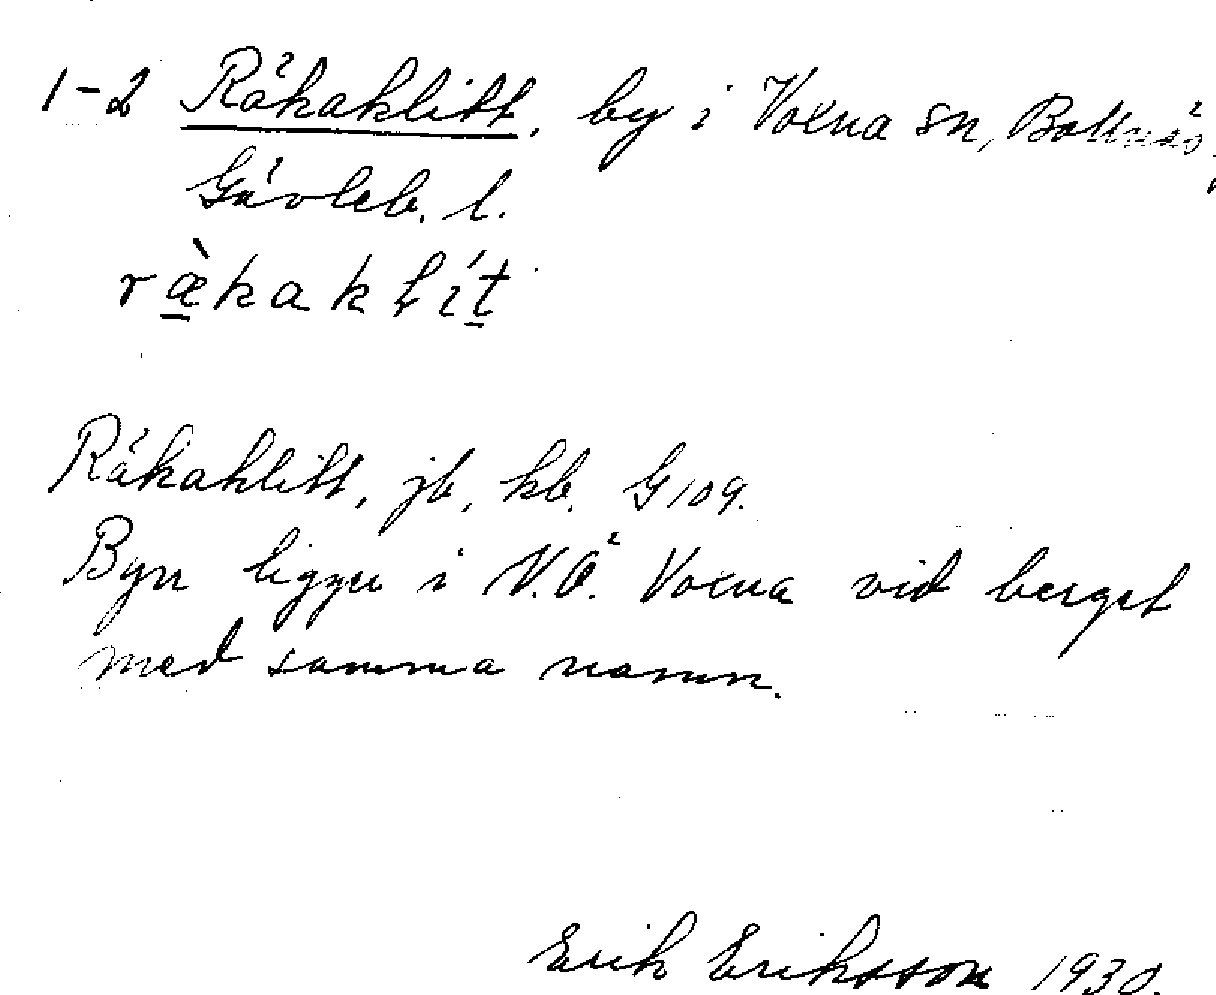 1-2 Räkaklitt, by i Voxna sn, Bollnäs,
Gävleb. l.
ræ̀kaklít
Räkaklitt, jb, kb. G 109.
Byn ligger i N.Ö. Voxna vid berget
med samma namn.
Erik Eriksson 1930.